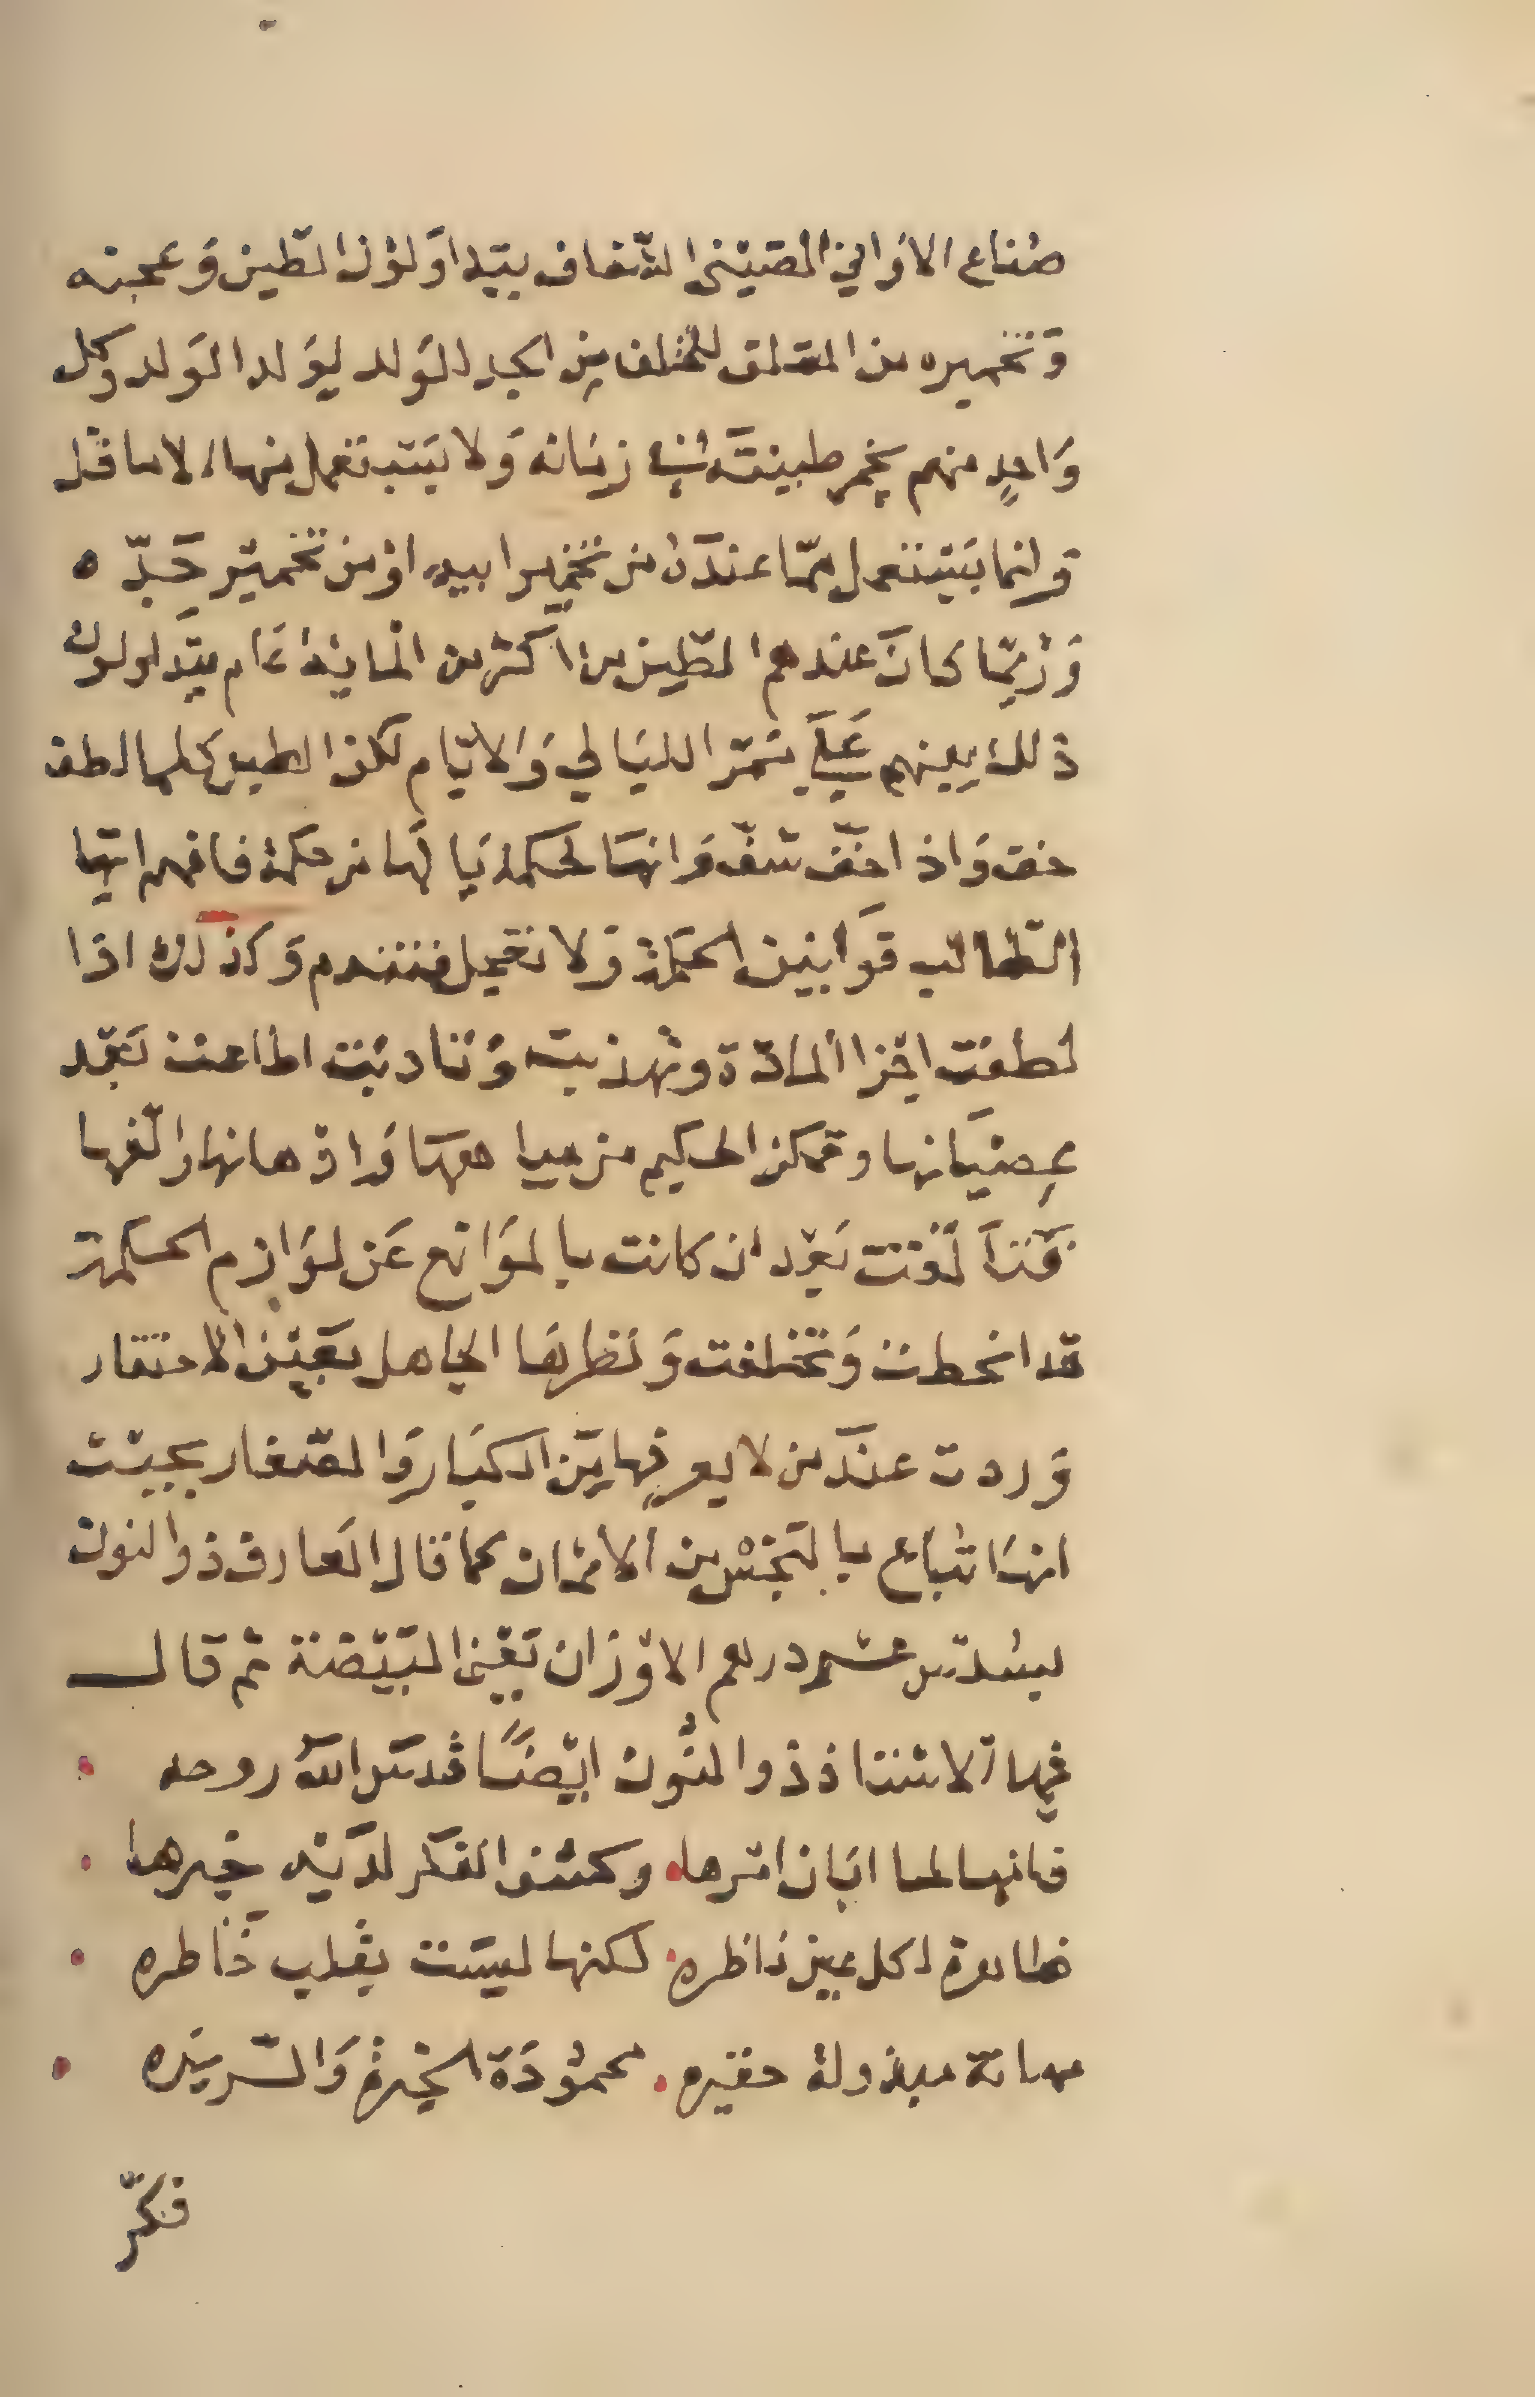 صُناع الاَواني الصّيْنى الشّفاف يتداوَلوْن الطّين وَعجنه
وَتخميره من السّلف للخلف مِن الجد الوَلد ليوَلد الوَلد وكل
وَاحدٍ منهم يخمر طينتَه في زمَانه وَلا يَستعمل منها الا ما قل
وَانما يَستعمل ممّا عندَه من تخمير ابيه اوْ من تخميْر جَدّه
وَرُبّما كانَ عندهم الطّين من اكثر من المايَة عَام يتدَاولون
ذلك بينهم عَلَي مَمَرّ الليَالي وَالايّام لكن الطين كلما لطف
خف وَاذا خفّ شفّ وَانهَا لحكمة يَا لهَا من حكمة فافهم ايّها
الطالب قوَانين الحكمَة وَلا تعجل فتندم وَكذلك اذا
لطفت اجْزا المادّة وتهذبت وَتادبَت اطاعت بَعْد
عِصْيَانها وتمكن الحكيم من ميا هها وَادْهانها وَالّفها
فَتَآلفت بَعْد ان كانت بالموَانع عَن لوَازم الحكمة
قد انحطت وَتخلفت وَنظرهَا الجاهل بعَيْن الاحتقار
وَردت عندَ من لا يعرفها بَين الكبَار وَالصّغار بحيْث
انهَا تُباع بالبَخْس من الاثمان كما قال العارف ذو النون
بسُدس عشر درهم الاوْزان يَعْنى المبَيّضَة ثم قال
فيها الاستاذ ذو النُّون ايْضًا قدسَ الله روحه
فانهَا لما ابَان امْرها وكشف الفكر لدَيْه خبرها
ظاهرة لكل عين ناظره لكنها ليسَت بقلب خَاطره
مهانة مبذولة حقيره محموُدَة الخبرة وَالسّريرَه
فكّر